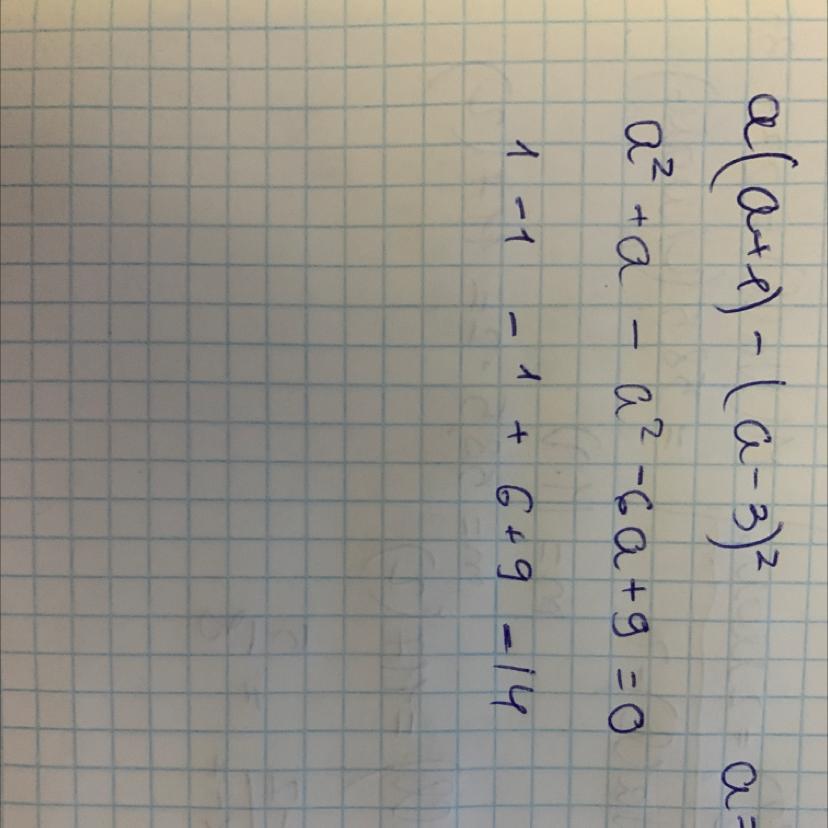 a(a+1)-(a-3)² a=
a²+a-a²-6a+9=0
1-1-1+6+9-14